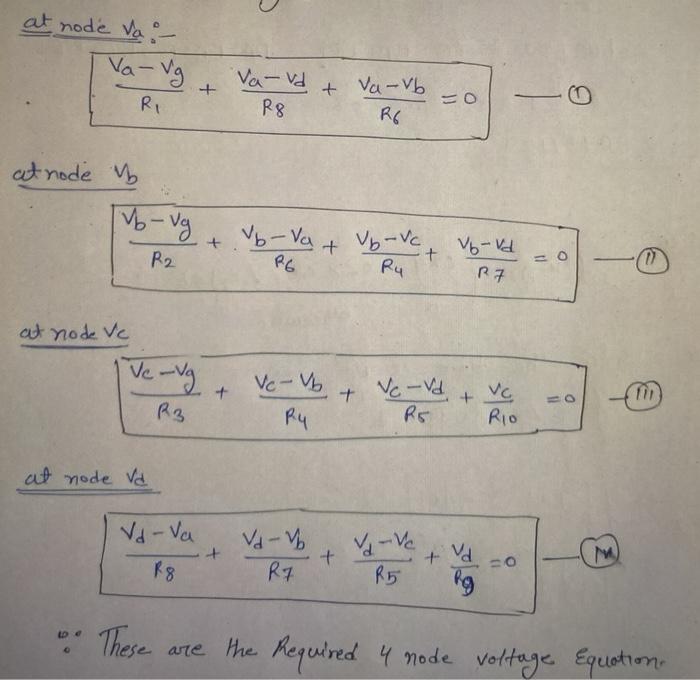 at node Va :-
(Va - Vg)/R1 + (Va - Vd)/R8 + (Va - Vb)/R6 = 0 — (I)
at node Vb
(Vb - Vg)/R2 + (Vb - Va)/R6 + (Vb - Vc)/R4 + (Vb - Vd)/R7 = 0 — (II)
at node Vc
(Vc - Vg)/R3 + (Vc - Vb)/R4 + (Vc - Vd)/R5 + Vc/R10 = 0 — (III)
at node Vd
(Vd - Va)/R8 + (Vd - Vb)/R7 + (Vd - Vc)/R5 + Vd/R9 = 0 — (IV)
These are the Required 4 node voltage Equation.